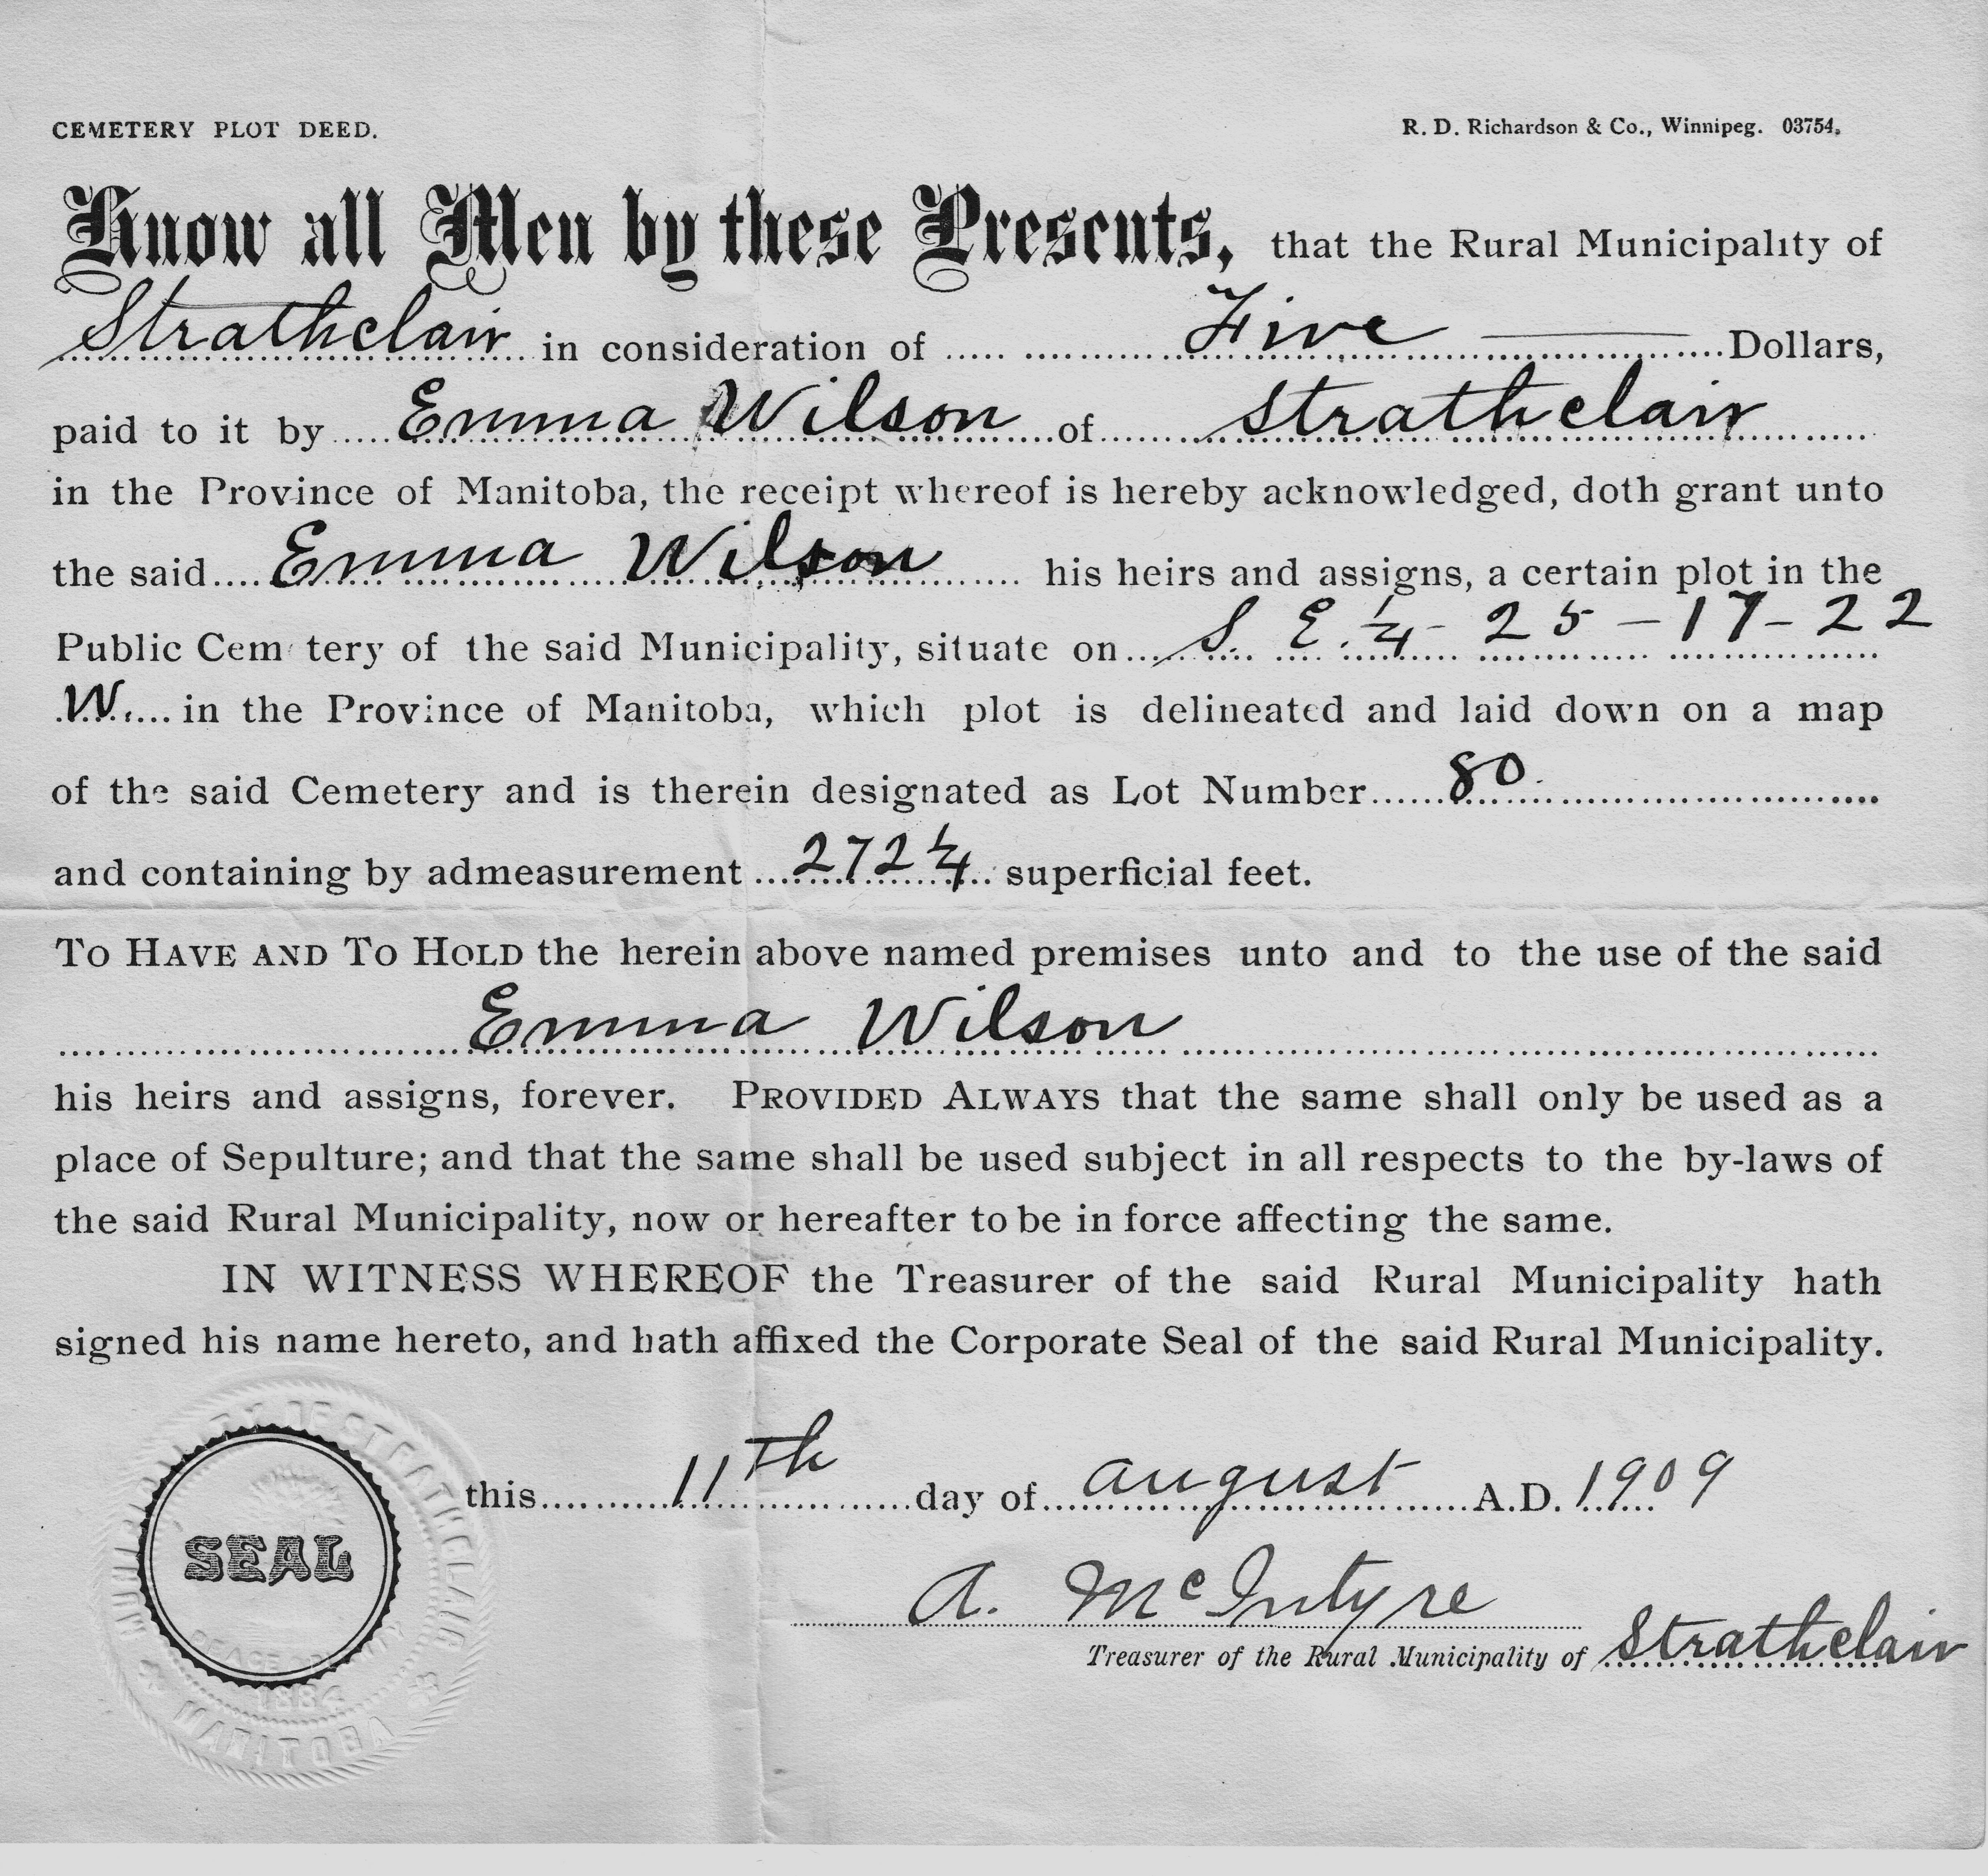 CEMETERY PLOT DEED.
R. D. Richardson & Co., Winnipeg. 03754.
Know all Men by these Presents, that the Rural Municipality of
Strathclair in consideration of Five Dollars,
paid to it by Emma Wilson of Strathclair
in the Province of Manitoba, the receipt whereof is hereby acknowledged, doth grant unto
the said Emma Wilson his heirs and assigns, a certain plot in the
Public Cem tery of the said Municipality, situate on S. E. ¼ - 25 - 17 - 22
W. in the Province of Manitoba, which plot is delineated and laid down on a map
of the said Cemetery and is therein designated as Lot Number 80.
and containing by admeasurement 272 ¼ superficial feet.
To Have and To Hold the herein above named premises unto and to the use of the said
Emma Wilson
his heirs and assigns, forever. Provided Always that the same shall only be used as a
place of Sepulture; and that the same shall be used subject in all respects to the by-laws of
the said Rural Municipality, now or hereafter to be in force affecting the same.
IN WITNESS WHEREOF the Treasurer of the said Rural Municipality hath
signed his name hereto, and hath affixed the Corporate Seal of the said Rural Municipality.
this 11th day of august A.D. 1909
MUNICIPALITY OF STRATHCLAIR
SEAL
PEACE
1884
MANITOBA
A. McIntyre
Treasurer of the Rural Municipality of Strathclair